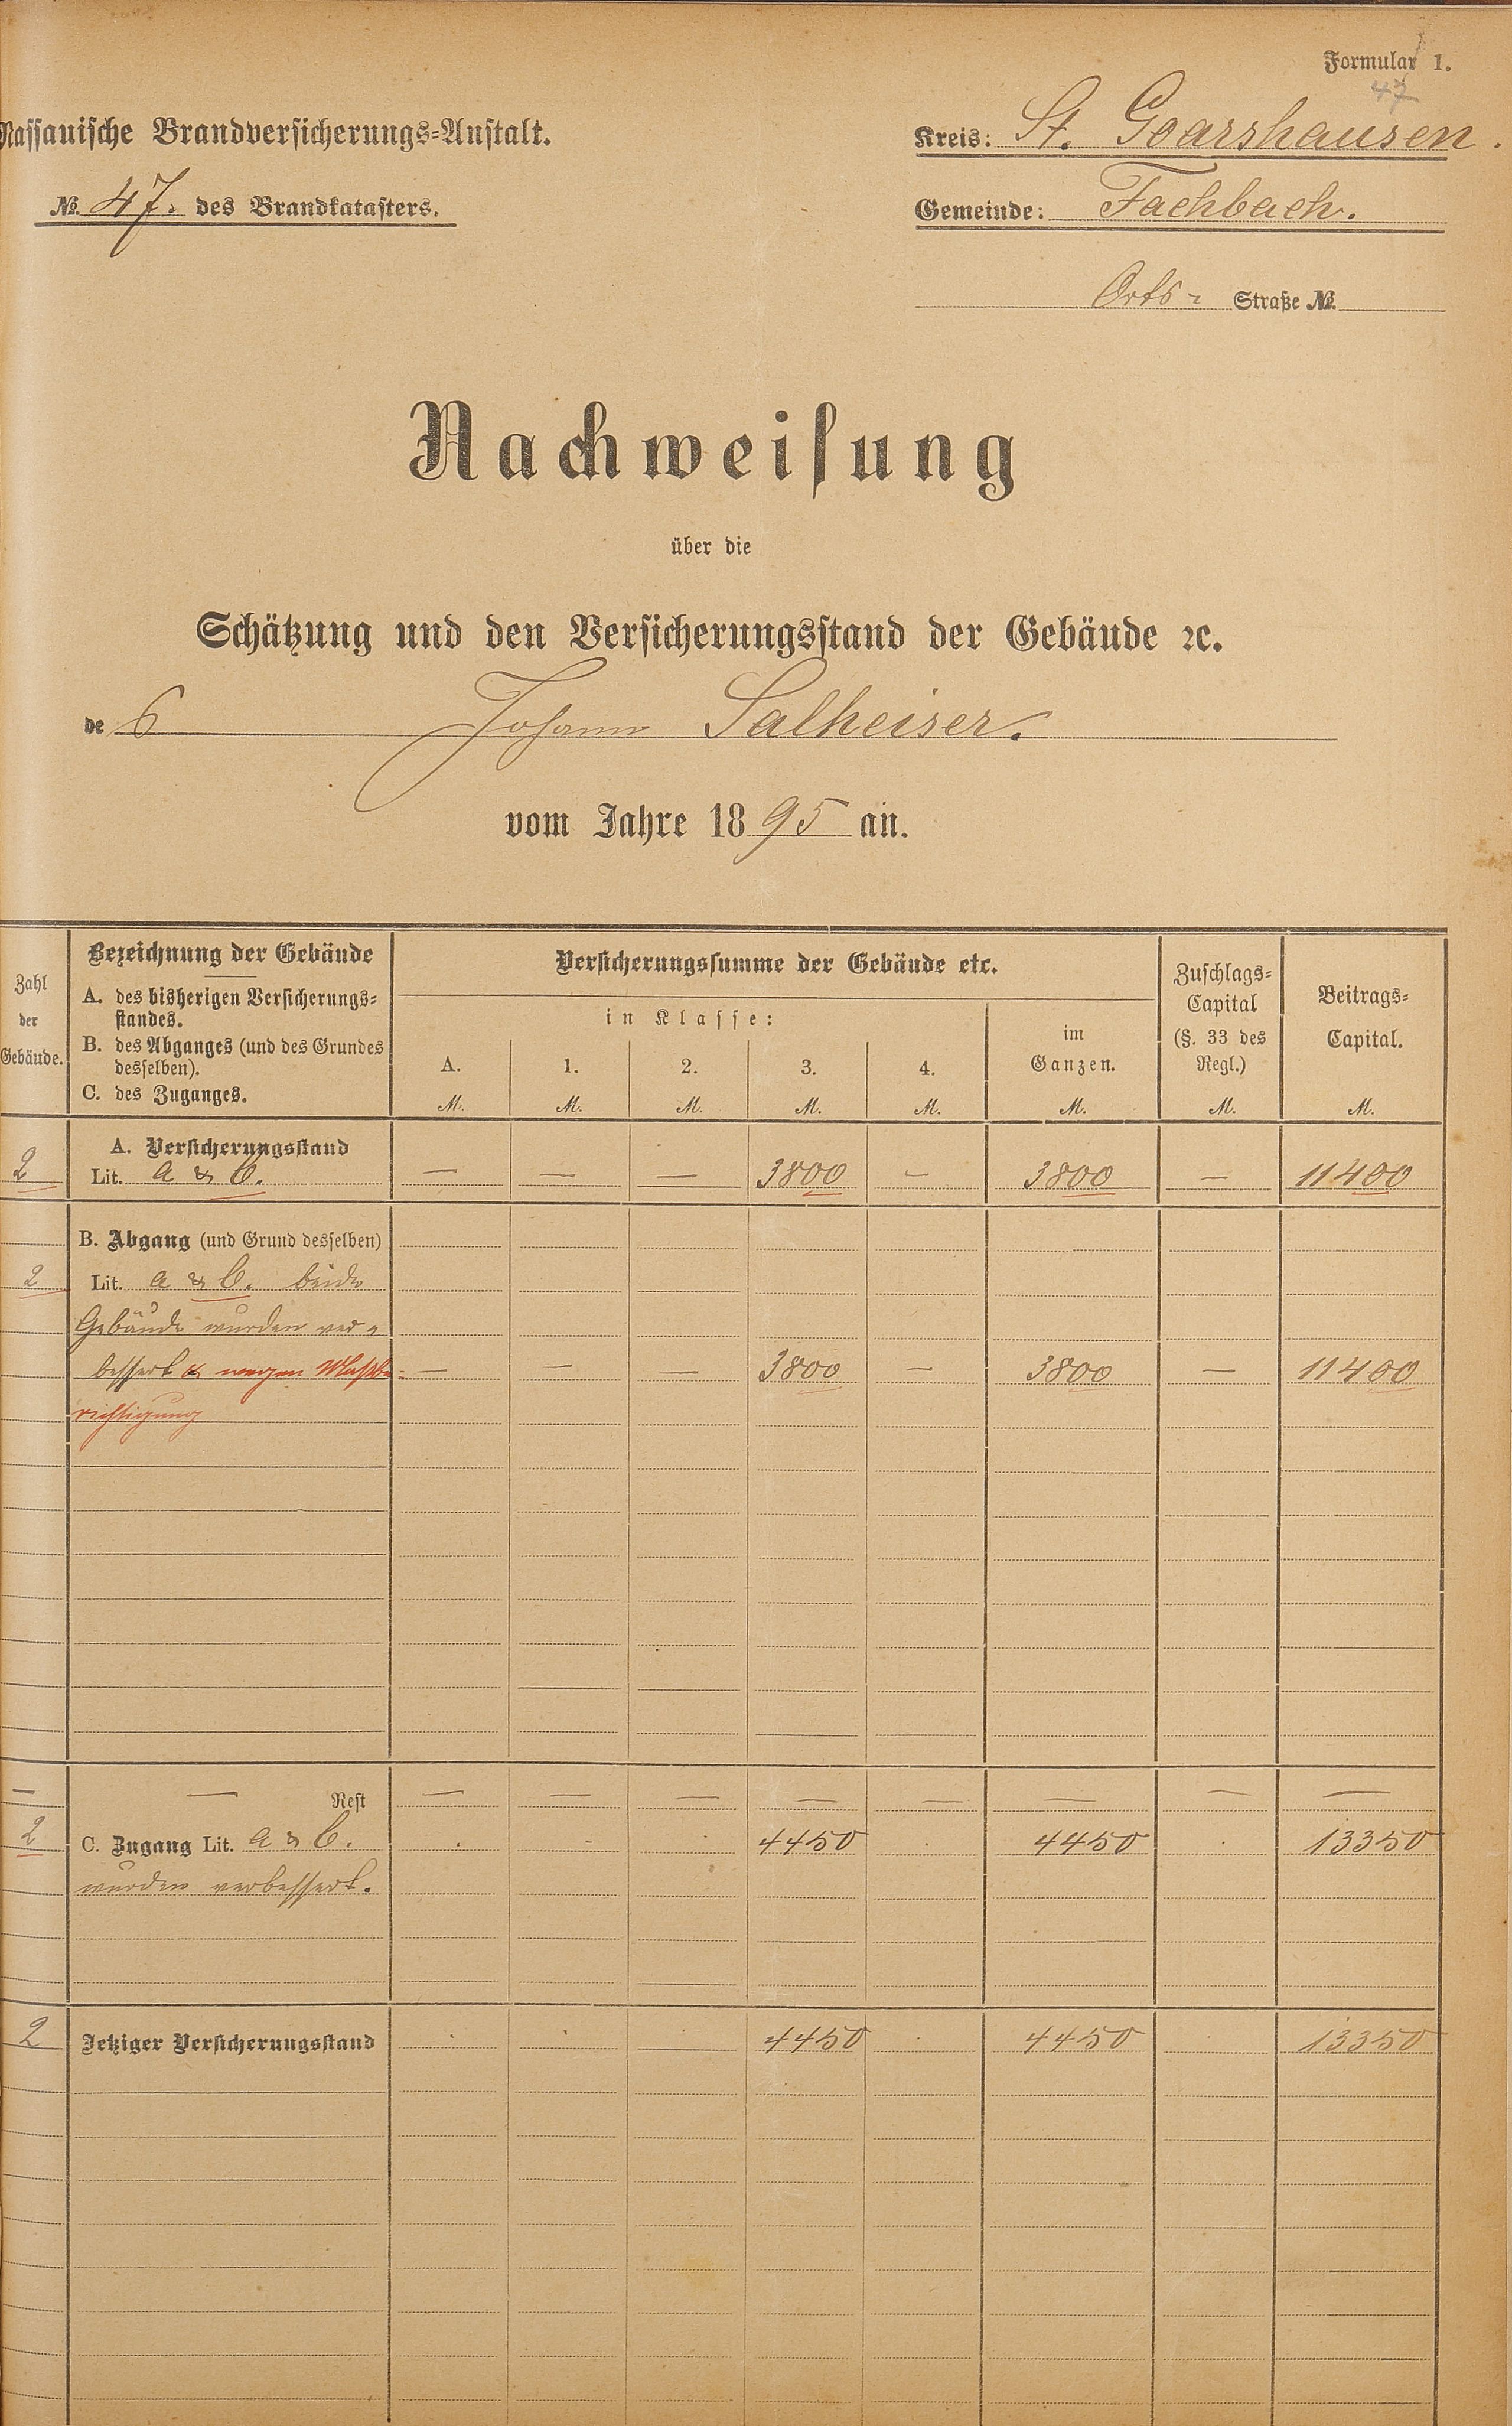 Formular 1.
47
Nassauische Brandversicherungs-Anstalt.
Kreis: St. Goarshausen.
No. 47. des Brandkatasters.
Gemeinde: Fachbach.
Orts- Straße No.
Nachweisung
über die
Schätzung und den Versicherungsstand der Gebäude ꝛc.
des Johann Salheiser.
vom Jahre 1895 an.
Zahl der Gebäude.
Bezeichnung der Gebäude
A. des bisherigen Versicherungs-
standes.
B. des Abganges (und des Grundes
desselben).
C. des Zuganges.
Versicherungssumme der Gebäude etc.
in Klasse:
A. 1. 2. 3. 4.
M. M. M. M. M.
im
Ganzen.
M.
Zuschlags-
Capital
(§. 33 des
Regl.)
M.
Beitrags-
Capital.
M.
A. Versicherungsstand
2 Lit. a & b. — — — 3800 — 3800 — 11400
B. Abgang (und Grund desselben)
2 Lit. a & b. beide
Gebäude wurden ver-
bessert & wegen Maßbe- — — — 3800 — 3800 — 11400
richtigung
— — Rest — — — — — — — —
2 C. Zugang Lit. a & b. . . . 4450 . 4450 . 13350
wurden verbessert.
2 Jetziger Versicherungsstand . . . 4450 . 4450 . 13350